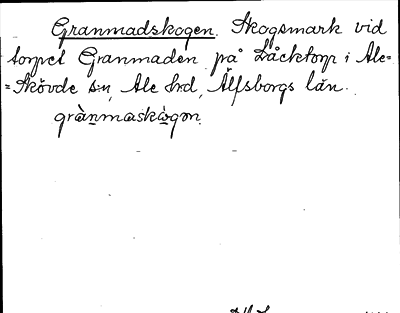 Granmadskogen. Skogsmark vid
torpet Granmaden på Låcktorp i Ale-
-Skövde sn, Ale hrd, Älfsborgs län.
grànmaskògən.